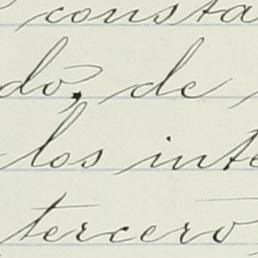 consta
do, de
los inte
tercero